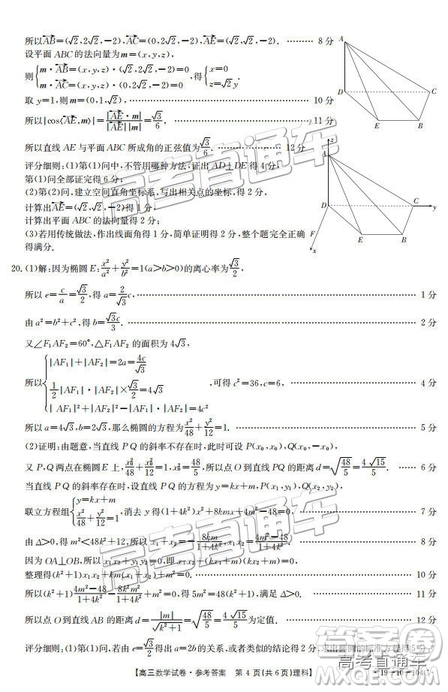 所以AB=(√2,√2,-2),AC=(0,2√2,-2),AE=(√2,√2,-2). 8分
设平面ABC的法向量为m=(x,y,z),
则{m·AB=(x,y,z)·(√2,√2,-2)=0 m·AC=(x,y,z)·(0,2√2,-2)=0,得{x=0 z=√2y.
取y=1,则m=(0,1,√2). 10分
所以|cos⟨AE,m⟩|=|AE·m|/|AE||m|=√3/6. 11分
所以直线AE与平面ABC所成角的正弦值为√3/6. 12分
评分细则:(1)第(1)问中,不管用哪种方法,证出AD⊥DE得4分,
第(1)问全部证完得6分;
(2)第(2)问,建立空间直角坐标系,写出相关点的坐标,得2分,
计算出AE=(√2,√2,-2)得1分
计算出平面ABC的法向量得2分;
(3)若用传统做法,作出线面角得2分,简单证明得2分,全部计算完正确
得满分.
A
D
C
E
B
A
D
C
y
E
B
x
20.(1)解:因为椭圆E:x²/a²+y²/b²=1(a>b>0)的离心率为√3/2,
所以e=c/a=√3/2,得a=2√3/3c. 1分
由a²=b²+c²,得b=√3/3c. 2分
又∠F₁AF₂=60°,△F₁AF₂的面积为4√3,
所以{|AF₁|+|AF₂|=2a=4c/√3 1/2|AF₁|·|AF₂|×√3/2=4√3 |AF₁|²+|AF₂|²-|AF₁|·|AF₂|=4c²,可得c²=36,c=6, 4分
所以a=4√3,b=2√3,那么椭圆的方程为x²/48+y²/12=1. 5分
(2)证明:由题意,当直线PQ的斜率不存在时,此时可设P(x₀,x₀),Q(x₀,-x₀).
又P,Q两点在椭圆E上,所以x₀²/48+x₀²/12=1,x₀²=48/5,所以点O到直线PQ的距离d=√(48/5)=4√15/5. 6分
当直线PQ的斜率存在时,设直线PQ的方程为y=kx+m,设点P(x₁,y₁),Q(x₂,y₂),
联立方程组{y=kx+m x²/48+y²/12=1,消去y得(1+4k²)x²+8kmx+4m²-48=0. 7分
由Δ>0,得m²<48k²+12,所以x₁+x₂=-8km/(1+4k²),x₁x₂=(4m²-48)/(1+4k²). 8分
因为OA⊥OB,所以x₁x₂+y₁y₂=0,即x₁x₂+(kx₁+m)(kx₂+m)=0,
整理得(k²+1)x₁x₂+km(x₁+x₂)+m²=0. 10分
所以(k²+1)(4m²-48)/(1+4k²)-8k²m²/(1+4k²)+m²=0. 11分
所以点O到直线PQ的距离d=|m|/√(k²+1)=√(48/5)=4√15/5为定值. 12分
【高三数学试卷·参考答案 第4页(共6页)理科】
高考直通车
高考直通车
高考直通车